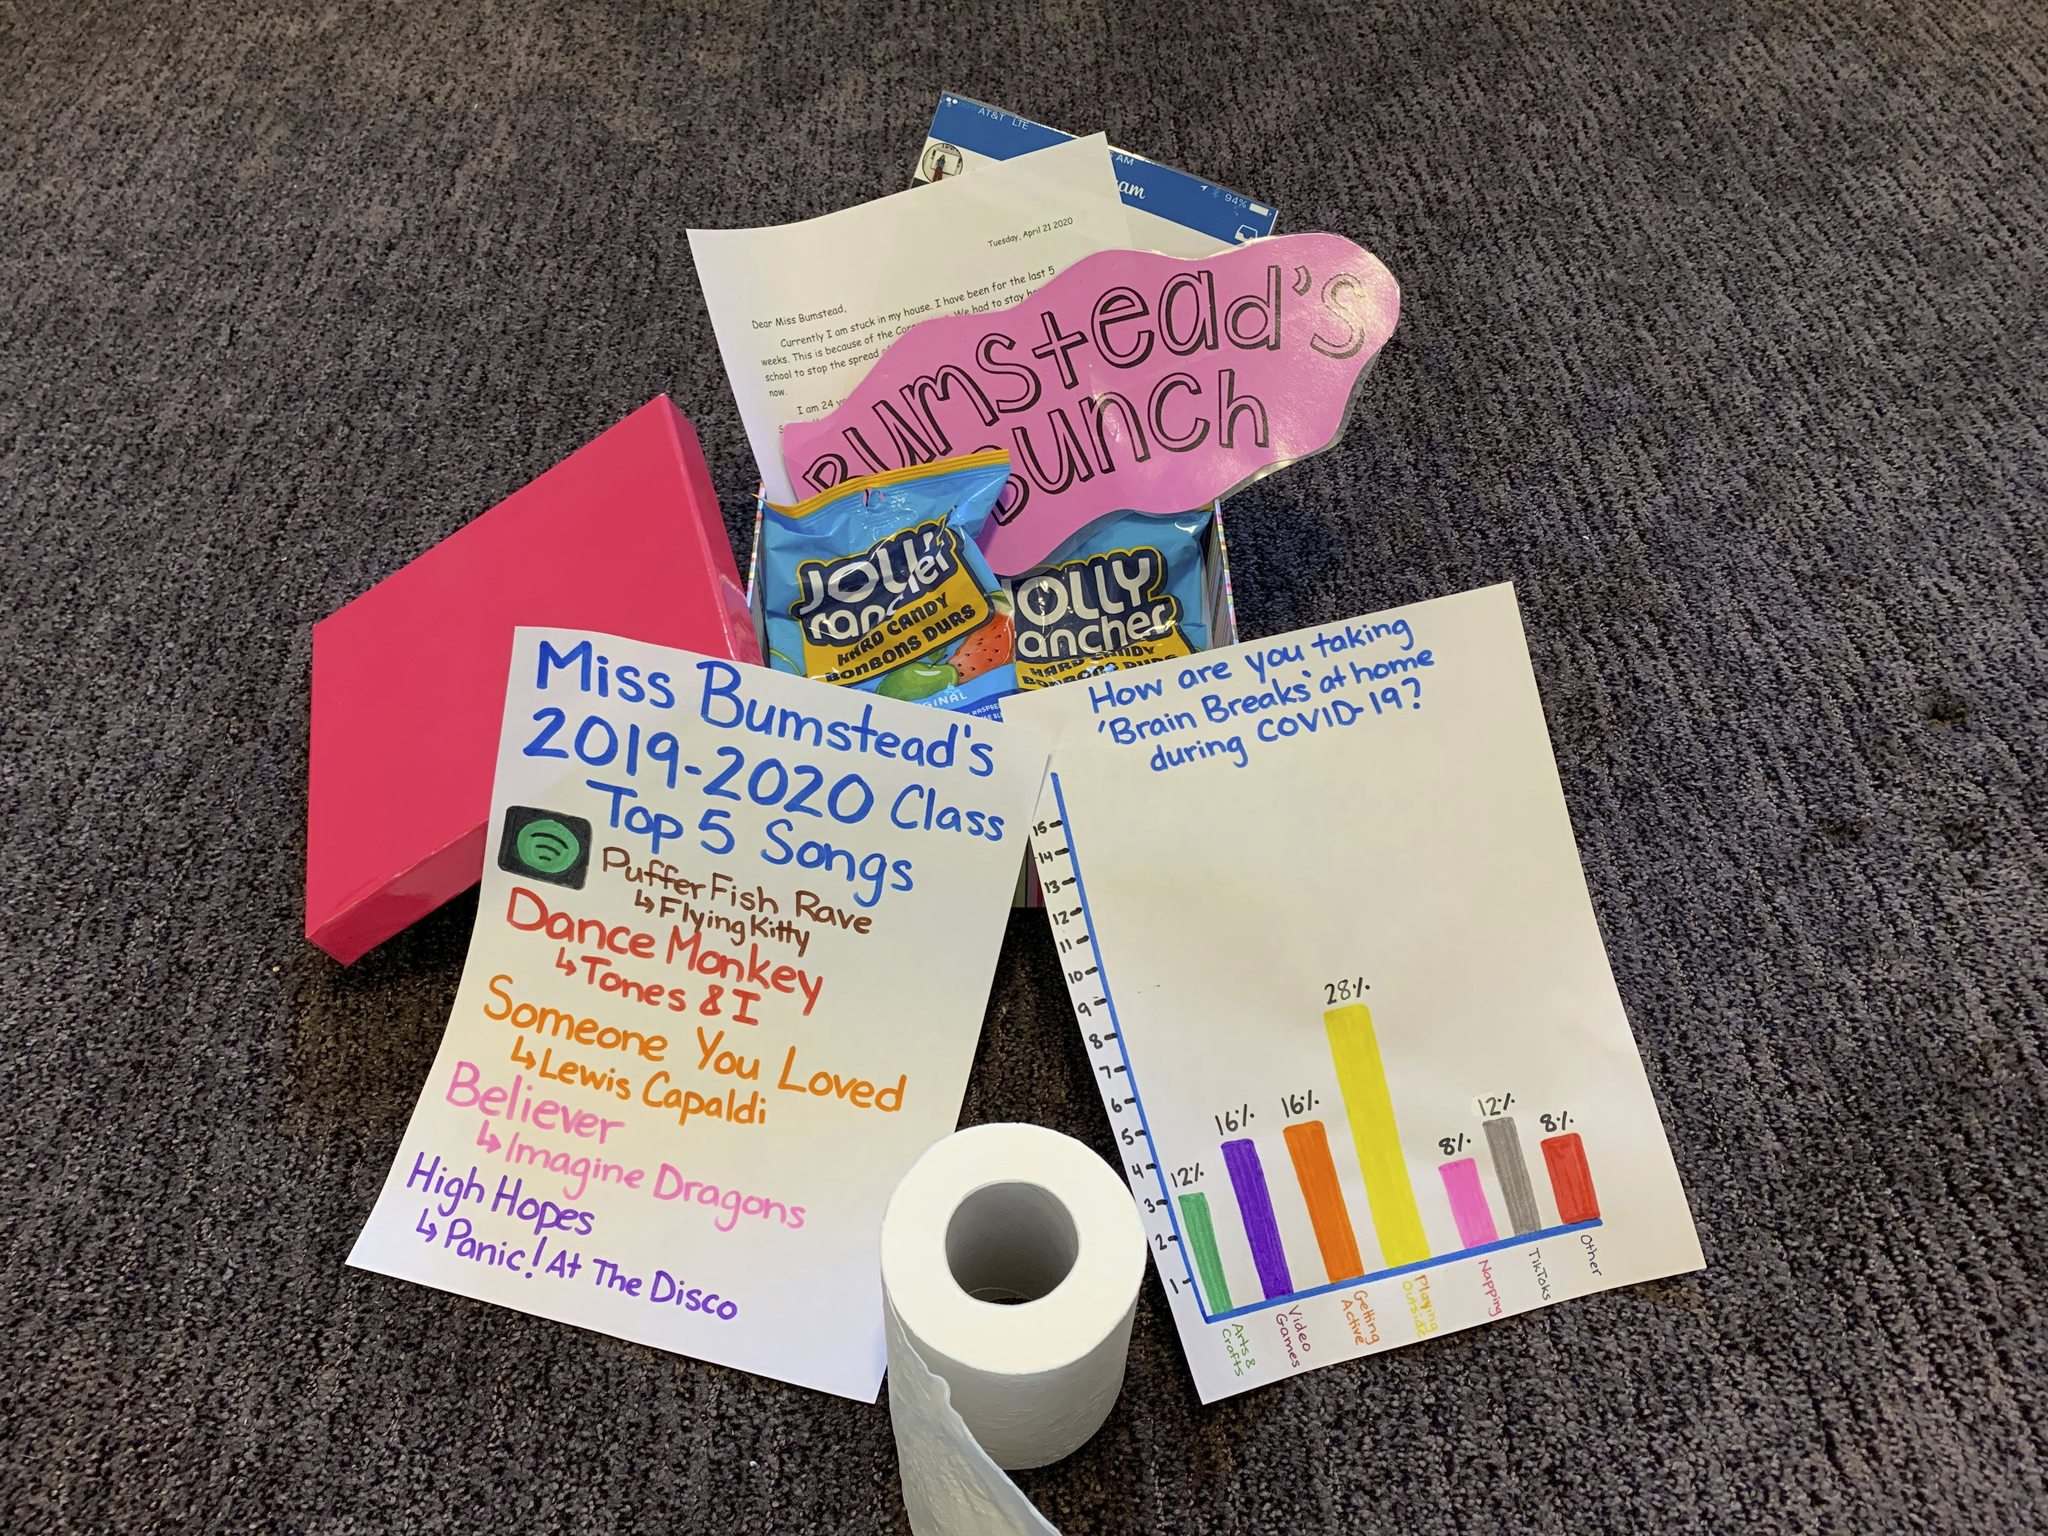 AT&T LTE
AM
94%
am
Tuesday, April 21 2020
Dear Miss Bumstead,
Currently I am stuck in my house. I have been for the last 5
weeks. This is because of the We had to stay
school to stop the spread
now.
I am 24
Bumstead's
Bunch
JOLLY
rancher
HARD CANDY
BONBONS DURS
ORIGINAL
JOLLY
rancher
HARD CANDY
BONBONS DURS
Miss Bumstead's
2019-2020 Class
Top 5 Songs
Puffer Fish Rave
↳ Flying Kitty
Dance Monkey
↳ Tones & I
Someone You Loved
↳ Lewis Capaldi
Believer
↳ Imagine Dragons
High Hopes
↳ Panic! At The Disco
How are you taking
'Brain Breaks' at home
during COVID-19?
15
14
13
12
11
10
9
8
7
6
5
4
3
2
1
12%
16%
16%
28%
8%
12%
8%
Arts &
Crafts
Video
Games
Getting
Active
Playing
Outside
Napping
TikToks
Other